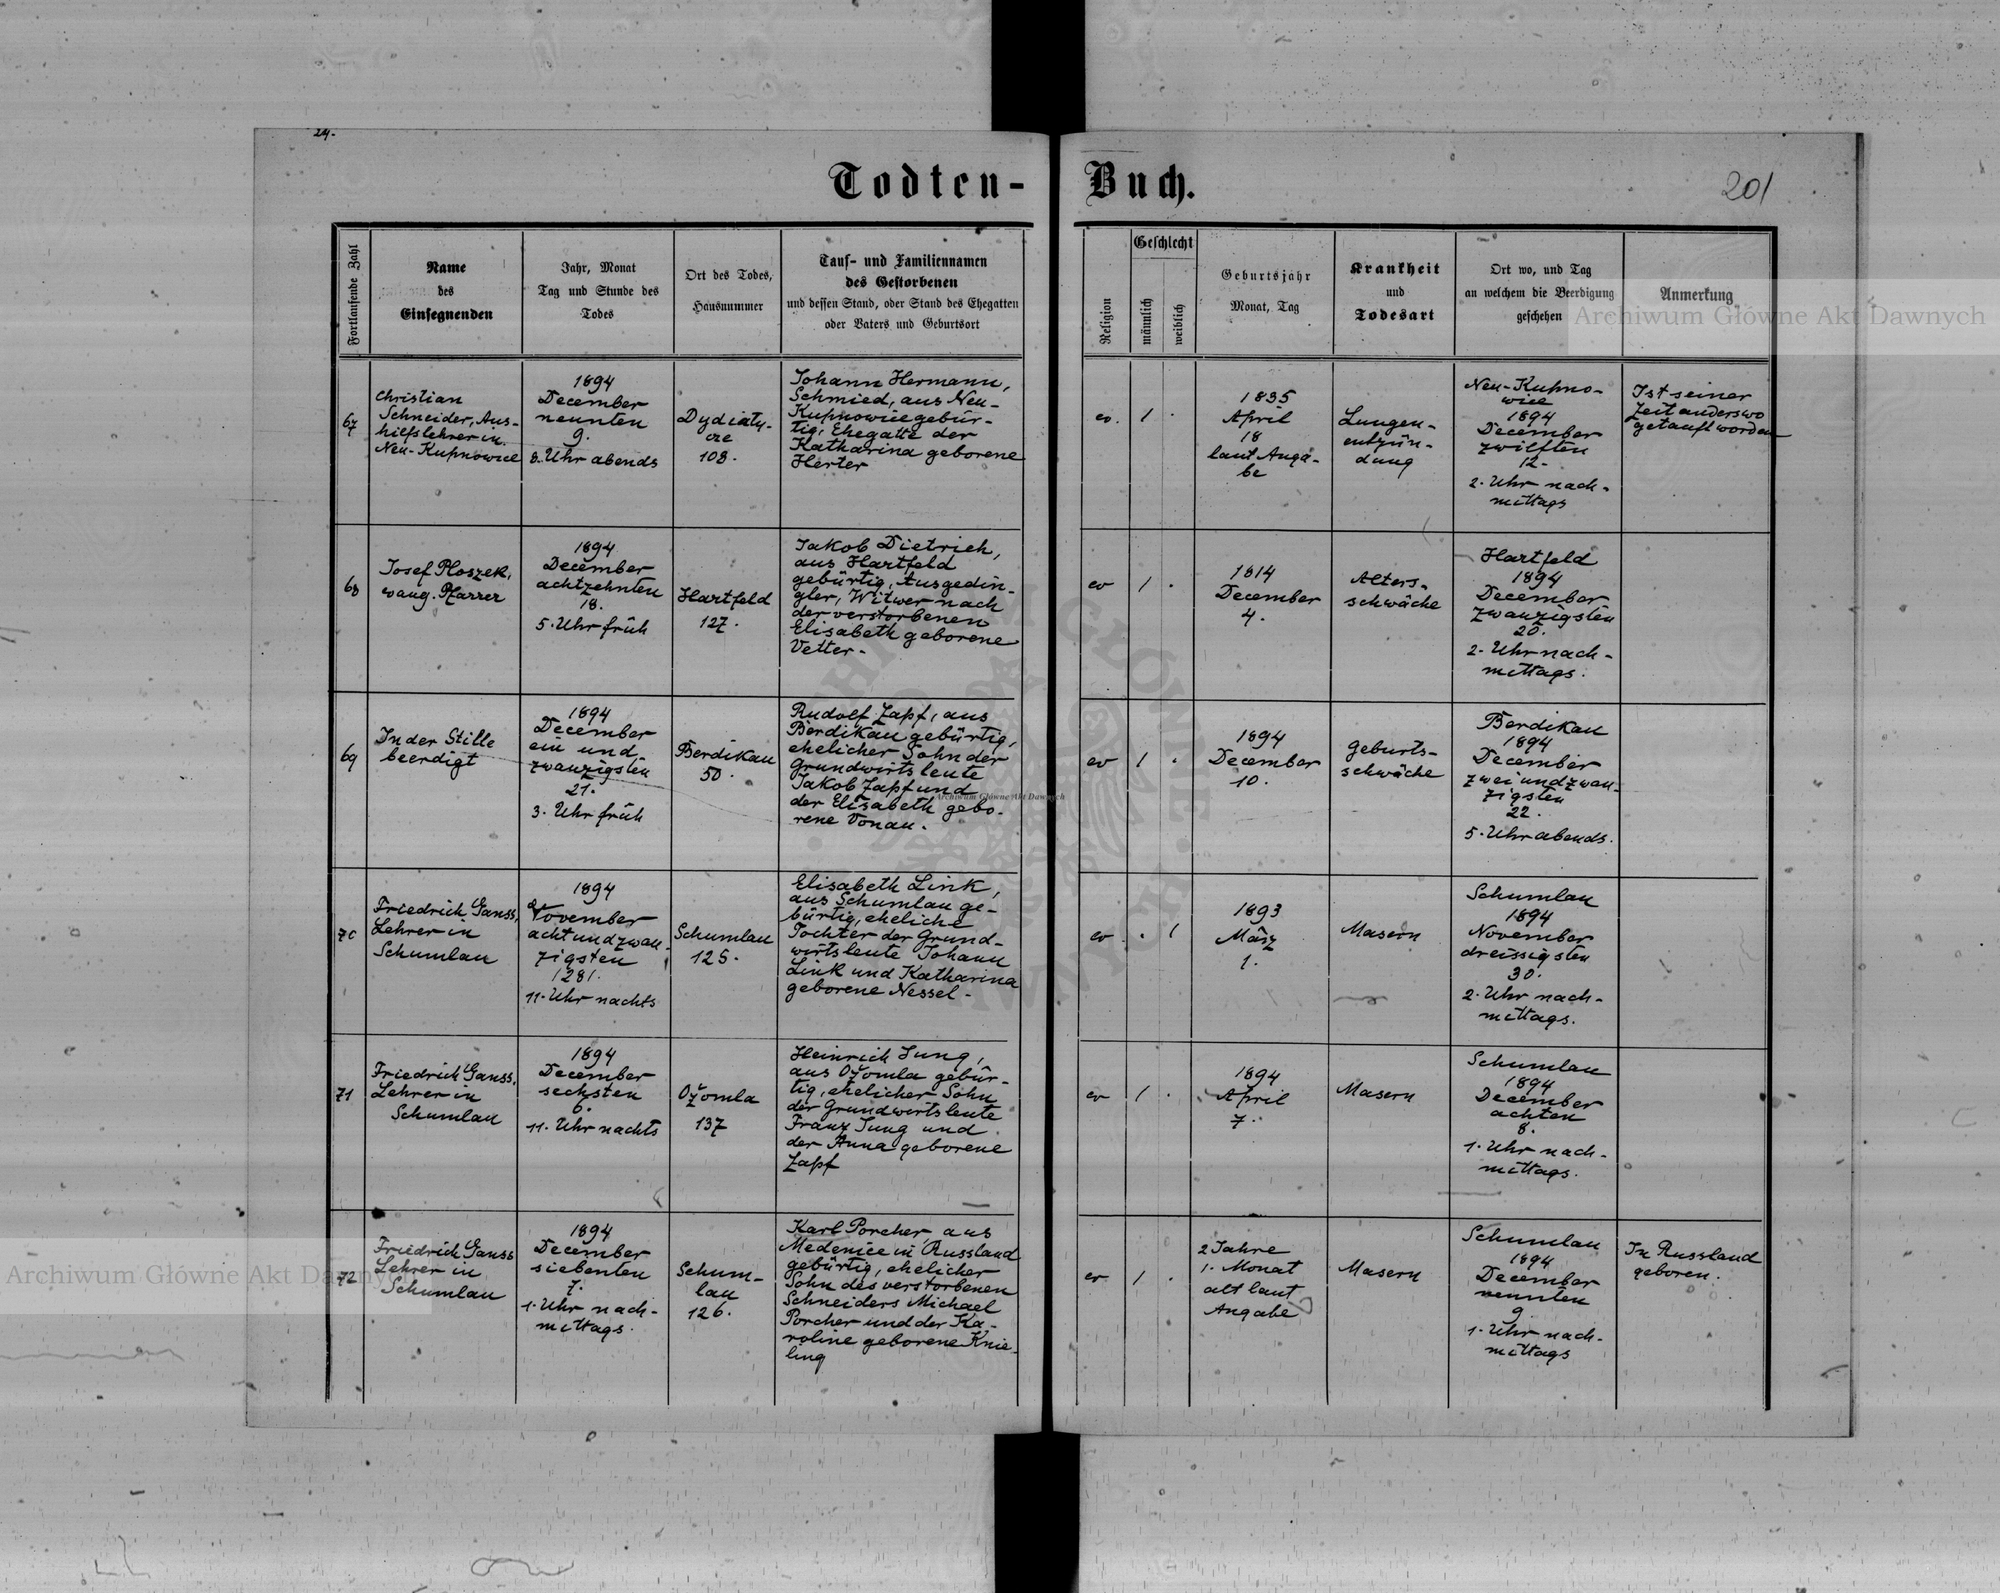 24.
Todten-Buch.
201
Fortlaufende Zahl
Name
des
Einsegnenden
Jahr, Monat
Tag und Stunde des
Todes
Ort des Todes,
Hausnummer
Tauf- und Familiennamen
des Gestorbenen
und dessen Stand, oder Stand des Ehegatten
oder Vaters und Geburtsort
Religion
Geschlecht
männlich
weiblich
Geburtsjahr
Monat, Tag
Krankheit
und
Todesart
Ort wo, und Tag
an welchem die Beerdigung
geschehen
Anmerkung
67
Christian
Schneider, Aus-
hilfslehrer in
Neu-Kupnowice
1894
December
neunten
9.
8. Uhr abends
Dydiaty-
cze
108.
Johann Hermann,
Schmied, aus Neu-
Kupnowice gebür-
tig, Ehegatte der
Katharina geborene
Herter
ev.
1
.
1835
April
18
laut Anga-
be
Lungen-
entzün-
dung
Neu-Kupno-
wice
1894
December
zwölften
12.
2. Uhr nach-
mittags
Ist seiner
Zeit anderswo
getauft worden
68
Josef Ploszek,
evang. Pfarrer
1894
December
achtzehnten
18.
5. Uhr früh
Hartfeld
127.
Jakob Dietrich,
aus Hartfeld
gebürtig, Ausgedin-
gler, Witwer nach
der verstorbenen
Elisabeth geborene
Vetter.
ev
1
.
1814
December
4.
Alters-
schwäche
Hartfeld
1894
December
zwanzigsten
20.
2. Uhr nach-
mittags.
69
In der Stille
beerdigt
1894
December
ein und
zwanzigsten
21.
3. Uhr früh
Berdikau
50.
Rudolf Zapf, aus
Berdikau gebürtig,
ehelicher Sohn der
Grundwirtsleute
Jakob Zapf und
der Elisabeth gebo-
rene Vonau.
ev
1
.
1894
December
10.
Geburts-
schwäche
Berdikau
1894
December
zweiundzwan-
zigsten
22.
5. Uhr abends.
70
Friedrich Ganss,
Lehrer in
Schumlau
1894
November
achtundzwan-
zigsten
1281.
11. Uhr nachts
Schumlau
125.
Elisabeth Link,
aus Schumlau ge-
bürtig, eheliche
Tochter der Grund-
wirtsleute Johann
Link und Katharina
geborene Nessel.
ev
.
1
1893
März
1.
Masern
Schumlau
1894
November
dreissigsten
30.
2. Uhr nach-
mittags.
71
Friedrich Ganss,
Lehrer in
Schumlau
1894
December
sechsten
6.
11. Uhr nachts
Ožomla
137
Heinrich Jung,
aus Ožomla gebür-
tig, ehelicher Sohn
der Grundwirtsleute
Franz Jung und
der Anna geborene
Zapf
ev
1
.
1894
April
7.
Masern
Schumlau
1894
December
achten
8.
1. Uhr nach-
mittags.
72
Friedrich Ganss
Lehrer in
Schumlau
1894
December
siebenten
7.
1. Uhr nach-
mittags.
Schum-
lau
126.
Karl Porcher, aus
Medenice in Russland
gebürtig, ehelicher
Sohn des verstorbenen
Schneiders Michael
Porcher und der Ka-
roline geborene Knie-
ling
ev.
1
.
2 Jahre
1. Monat
alt laut
Angabe
Masern
Schumlau
1894
December
neunten
9
1. Uhr nach-
mittags
In Russland
geboren.
Archiwum Główne Akt Dawnych
Archiwum Główne Akt Dawnych
Archiwum Główne Akt Dawnych